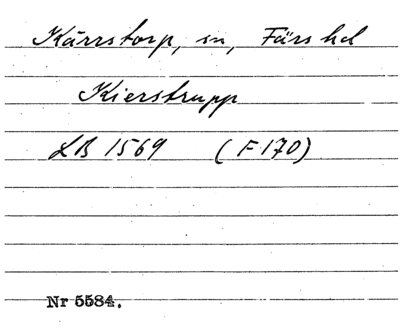 Kärrstorp, sn, Färs hd
Kierstrupp
LB 1569 (F 170)
Nr 5584.